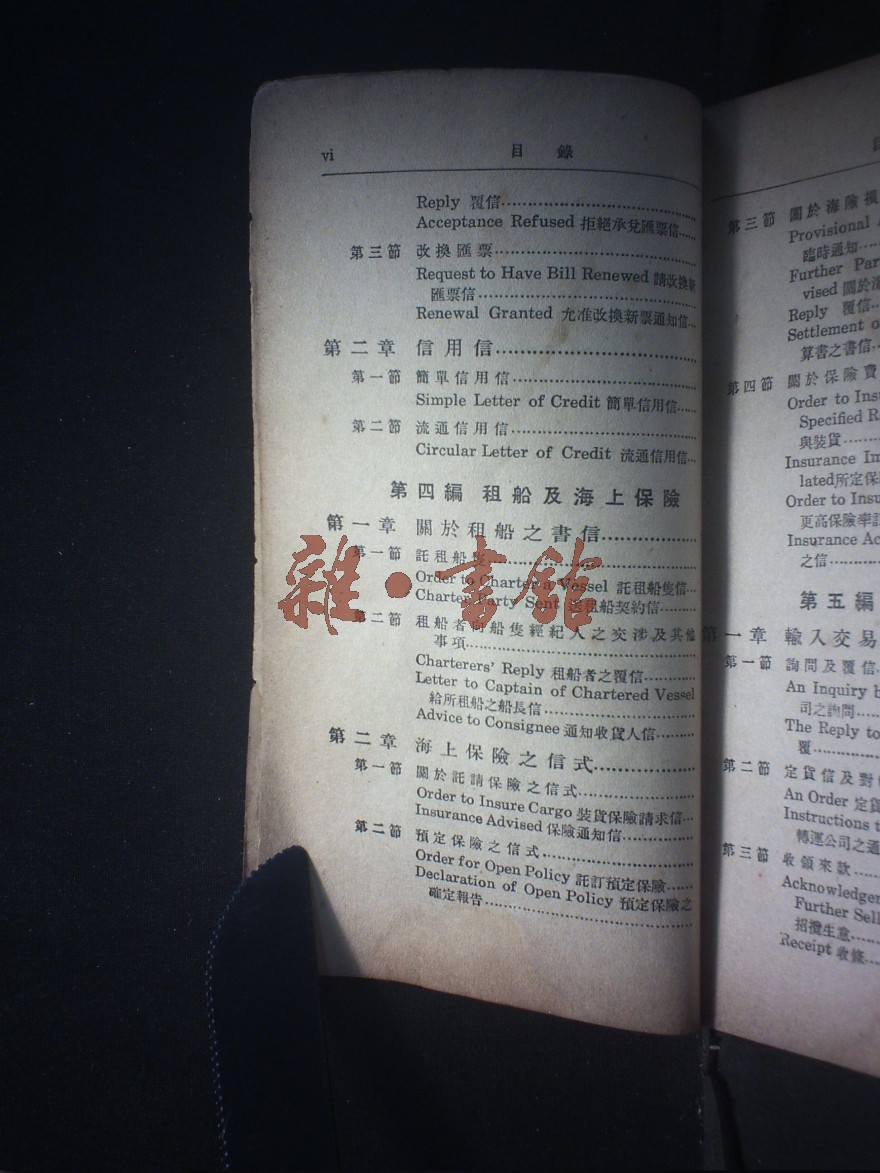 vi 目錄
Reply 覆信
Acceptance Refused 拒絕承兌匯票信
第三節 改換匯票
Request to Have Bill Renewed 請改換新
匯票信
Renewal Granted 允准改換新票通知信
第二章 信用信
第一節 簡單信用信
Simple Letter of Credit 簡單信用信
第二節 流通信用信
Circular Letter of Credit 流通信用信
第四編 租船及海上保險
第一章 關於租船之書信
第一節 託租船隻
Order to Charter a Vessel 託租船隻信
Charter Party Sent 送租船契約信
第二節 租船者向船隻經紀人之交涉及其他
事項
Charterers' Reply 租船者之覆信
Letter to Captain of Chartered Vessel
給所租船之船長信
Advice to Consignee 通知收貨人信
第二章 海上保險之信式
第一節 關於託請保險之信式
Order to Insure Cargo 裝貨保險請求信
Insurance Advised 保險通知信
第二節 預定保險之信式
Order for Open Policy 託訂預定保險
Declaration of Open Policy 預定保險之
確定報告
雜·書館
第三節 關於海險損
Provisional
臨時通知
Further Par
vised 關於
Reply 覆信
Settlement o
算書之書信
第四節 關於保險費
Order to Insu
Specified R
與裝貨
Insurance Im
lated所定保
Order to Insu
更高保險率
Insurance Ac
之信
第五編
第一章 輸入交易
第一節 詢問及覆信
An Inquiry b
司之詢問
The Reply to
覆
第二節 定貨信及對
An Order 定貨
Instructions t
轉運公司之通
第三節 收領來款
Acknowledgem
Further Sell
招攬生意
Receipt 收條